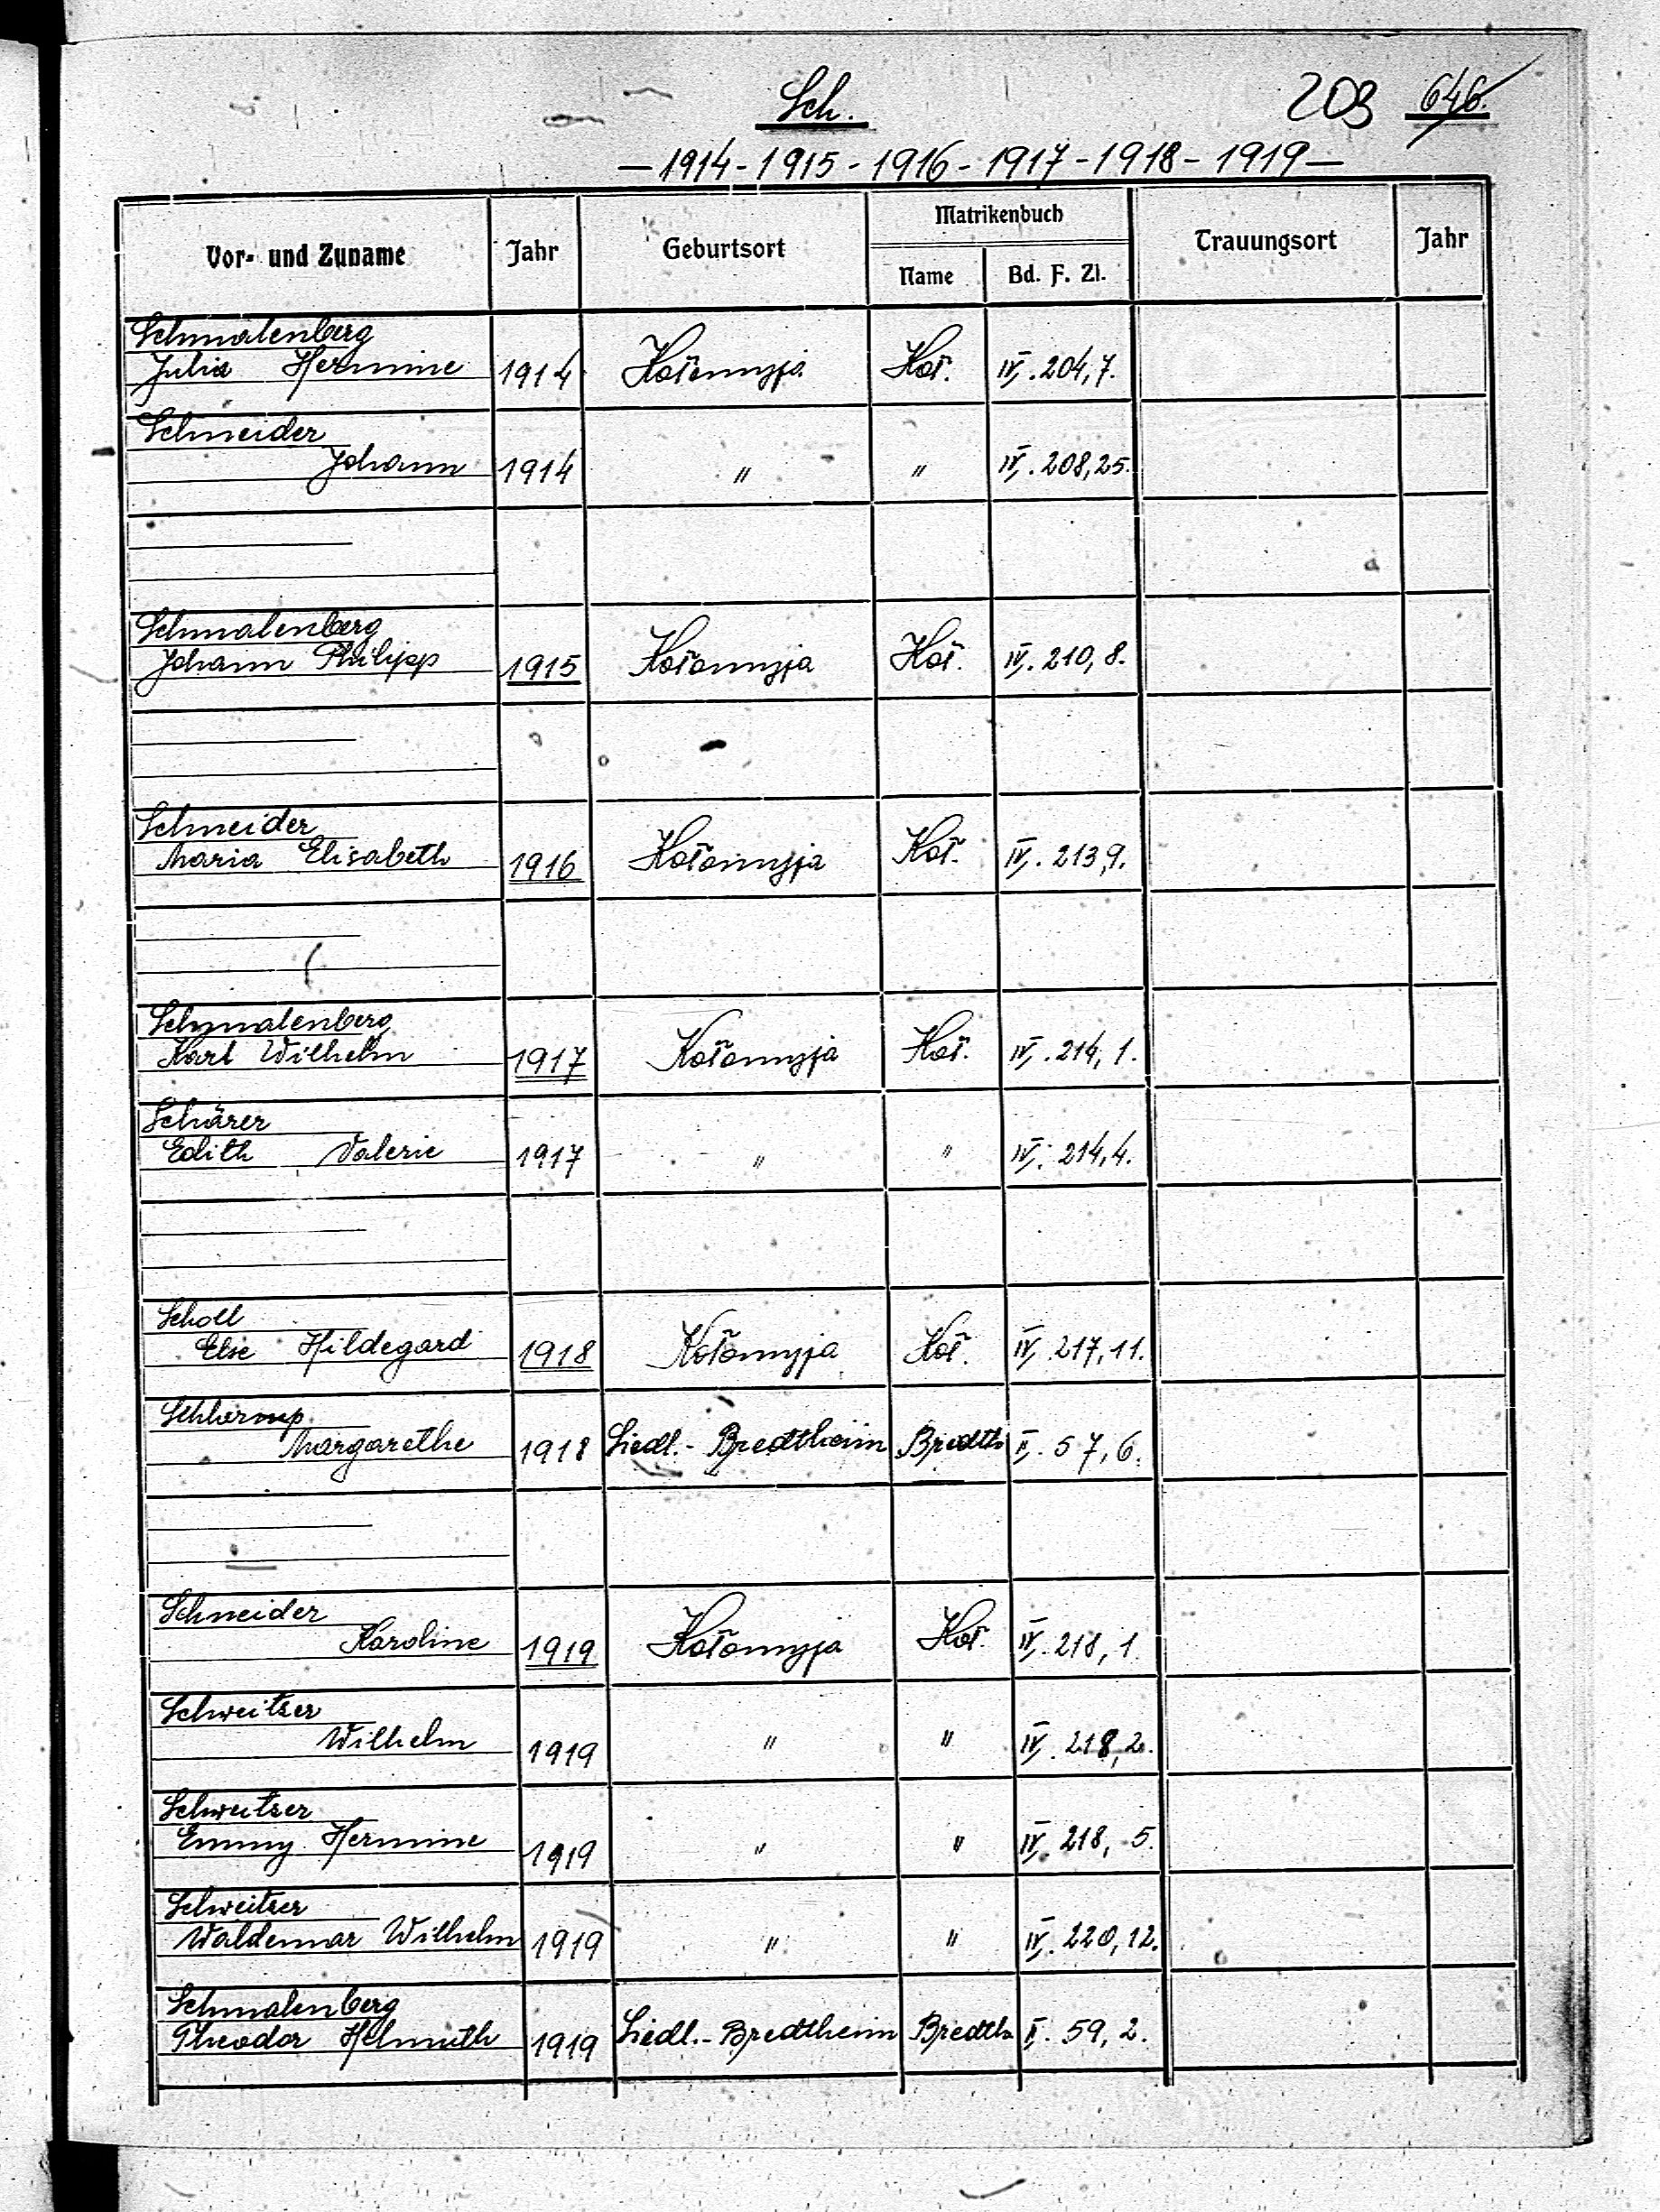 Sch. 203 646.
— 1914 - 1915 - 1916 - 1917 - 1918 - 1919 —
Vor- und Zuname Jahr Geburtsort Matrikenbuch Trauungsort Jahr
Name Bd. F. Zl.
Schmalenberg
Julia Hermine 1914 Kołomyja Koł. IV. 204,7.
Schneider
Johann 1914 " " IV. 208,25.
Schmalenberg
Johann Philipp 1915 Kołomyja Koł. IV. 210, 8.
Schneider
Maria Elisabeth 1916 Kołomyja Koł. IV. 213,9.
Schmalenberg
Karl Wilhelm 1917 Kołomyja Koł. IV. 214, 1.
Schärer
Edith Valerie 1917 " " IV. 214,4.
Scholl
Else Hildegard 1918 Kołomyja Koł. IV. 217,11.
Schlamp
Margarethe 1918 Siedl.-Bredtheim Bredth II. 57,6.
Schneider
Karoline 1919 Kołomyja Koł. IV. 218, 1.
Schweitzer
Wilhelm 1919 " " IV. 218,2.
Schweitzer
Emmy Hermine 1919 " " IV. 218, 5.
Schweitzer
Waldemar Wilhelm 1919 " " IV. 220,12.
Schmalenberg
Theodor Helmuth 1919 Siedl.-Bredtheim Bredth II. 59,2.